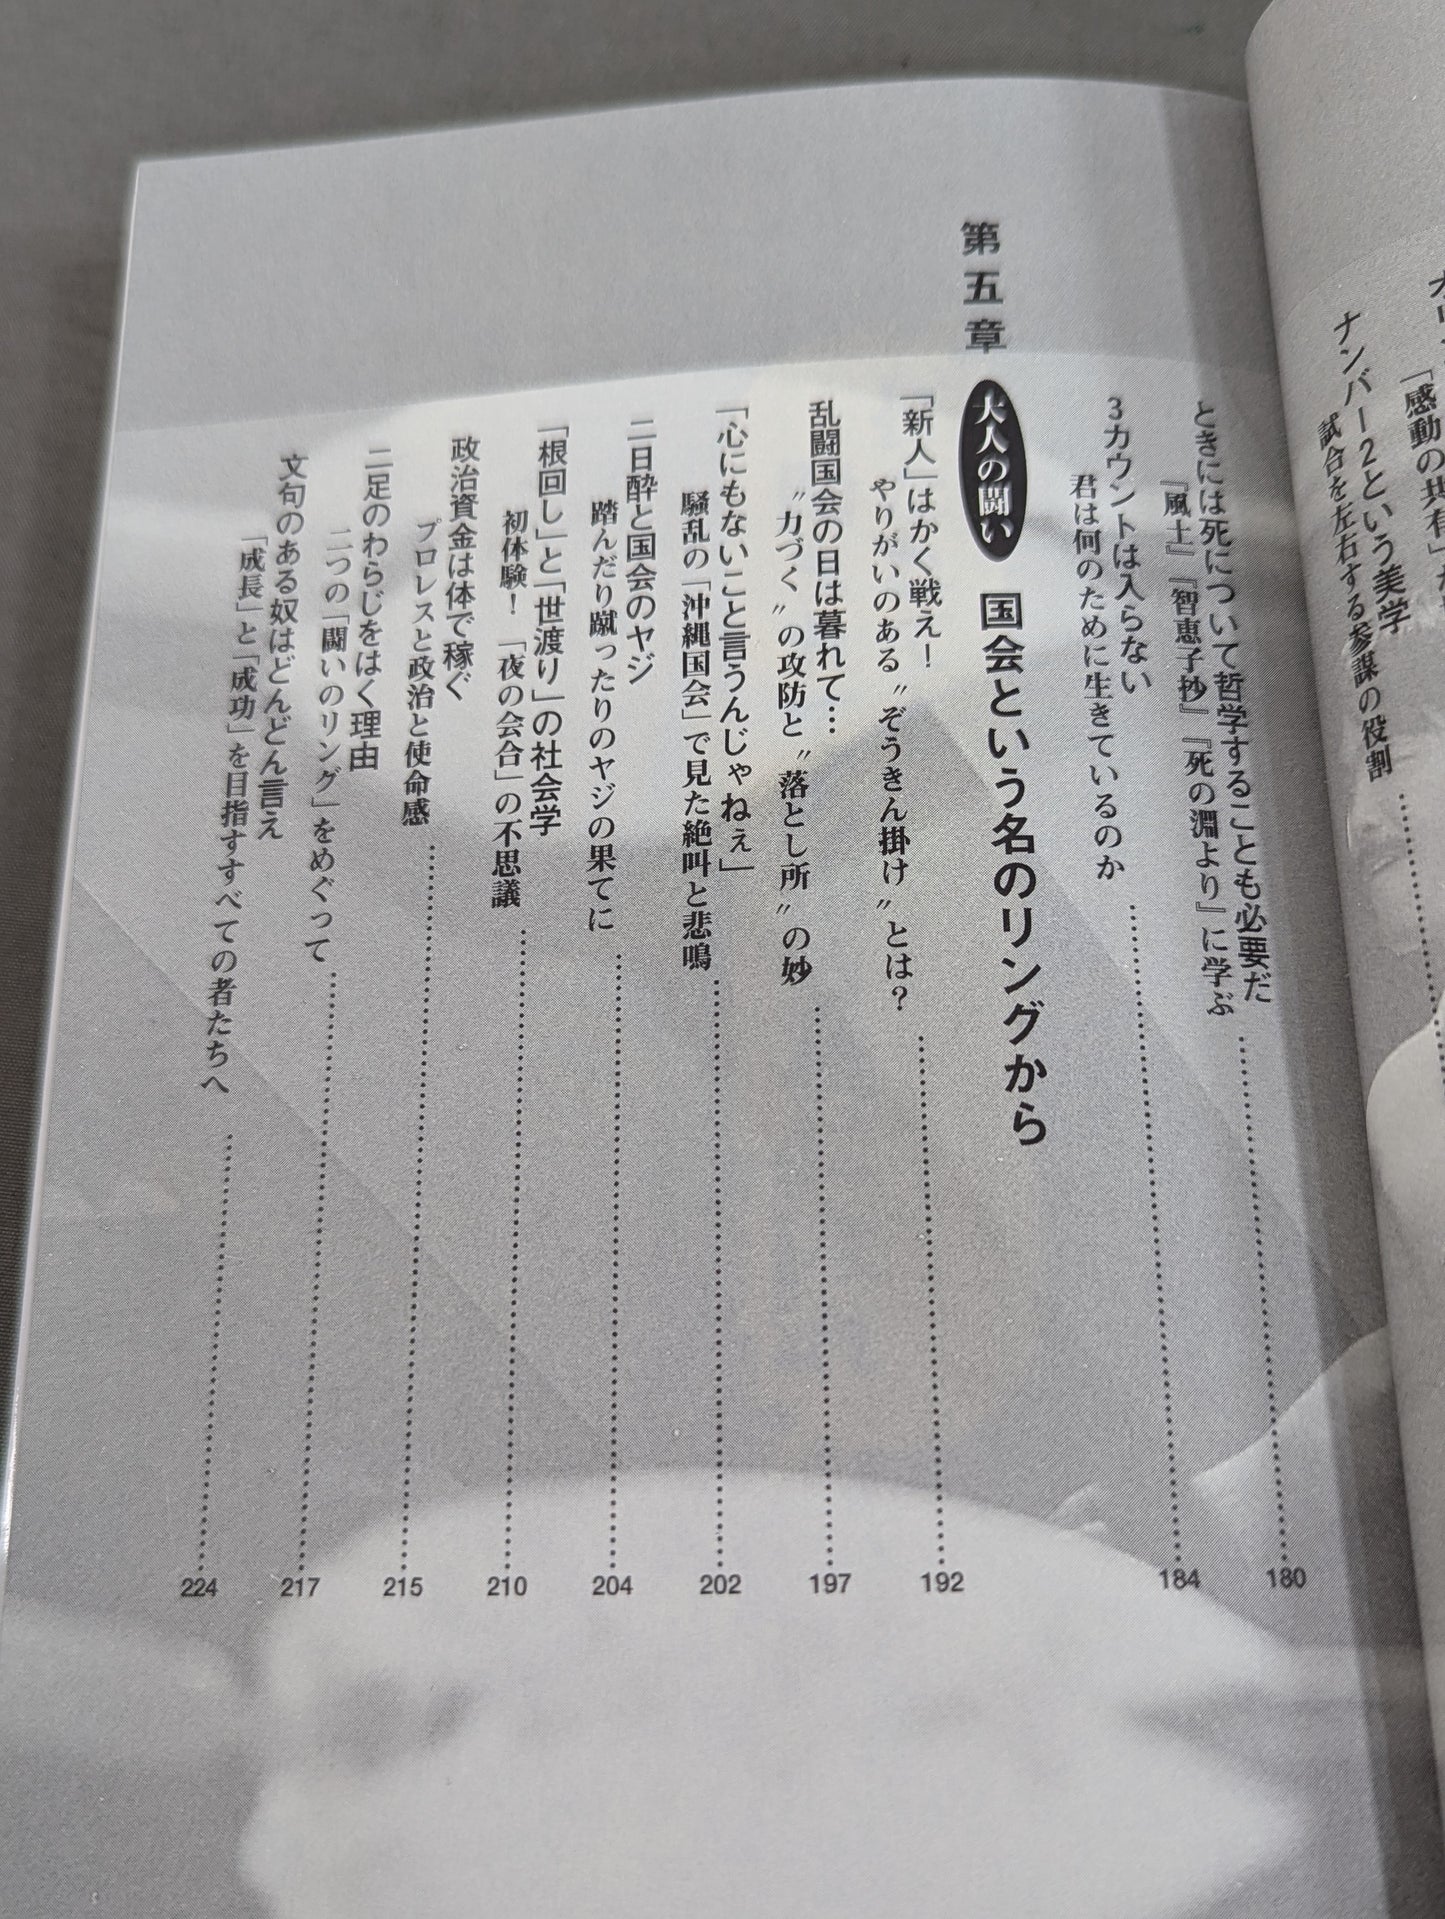 「感動の共有」
ナンバー2という美学
試合を左右する参謀の役割
ときには死について哲学することも必要だ
『風土』『智恵子抄』『死の淵より』に学ぶ
180
3カウントは入らない
君は何のために生きているのか
184
第五章 大人の闘い 国会という名のリングから
「新人」はかく戦え！
やりがいのある〝ぞうきん掛け〟とは？
192
乱闘国会の日は暮れて…
〝力づく〟の攻防と〝落とし所〟の妙
197
「心にもないこと言うんじゃねぇ」
騒乱の「沖縄国会」で見た絶叫と悲鳴
202
二日酔と国会のヤジ
踏んだり蹴ったりのヤジの果てに
204
「根回し」と「世渡り」の社会学
初体験！「夜の会合」の不思議
210
政治資金は体で稼ぐ
プロレスと政治と使命感
215
二足のわらじをはく理由
二つの「闘いのリング」をめぐって
217
文句のある奴はどんどん言え
「成長」と「成功」を目指すすべての者たちへ
224